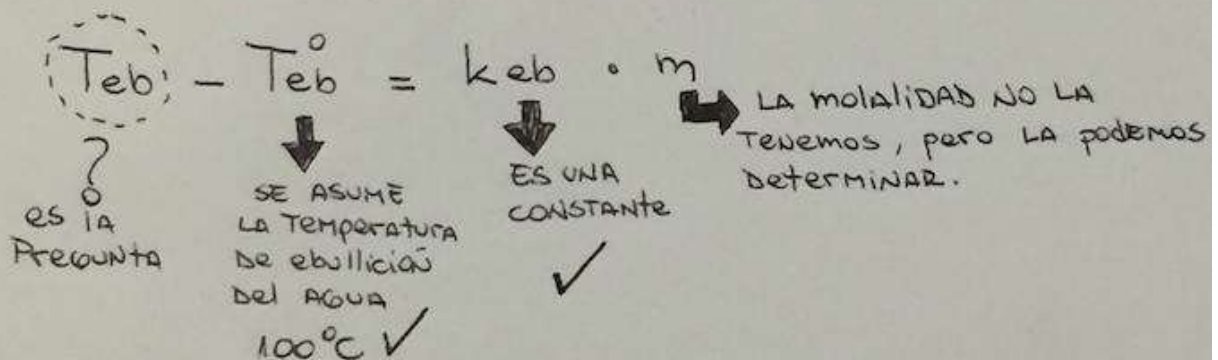 Teb - Teb° = keb · m
?
es la
Pregunta
SE ASUME
LA Temperatura
De ebullición
Del AGUA
100°C ✓
ES UNA
CONSTANTE
✓
LA molaliDAD NO LA
Tenemos, pero LA podemos
Determinar.